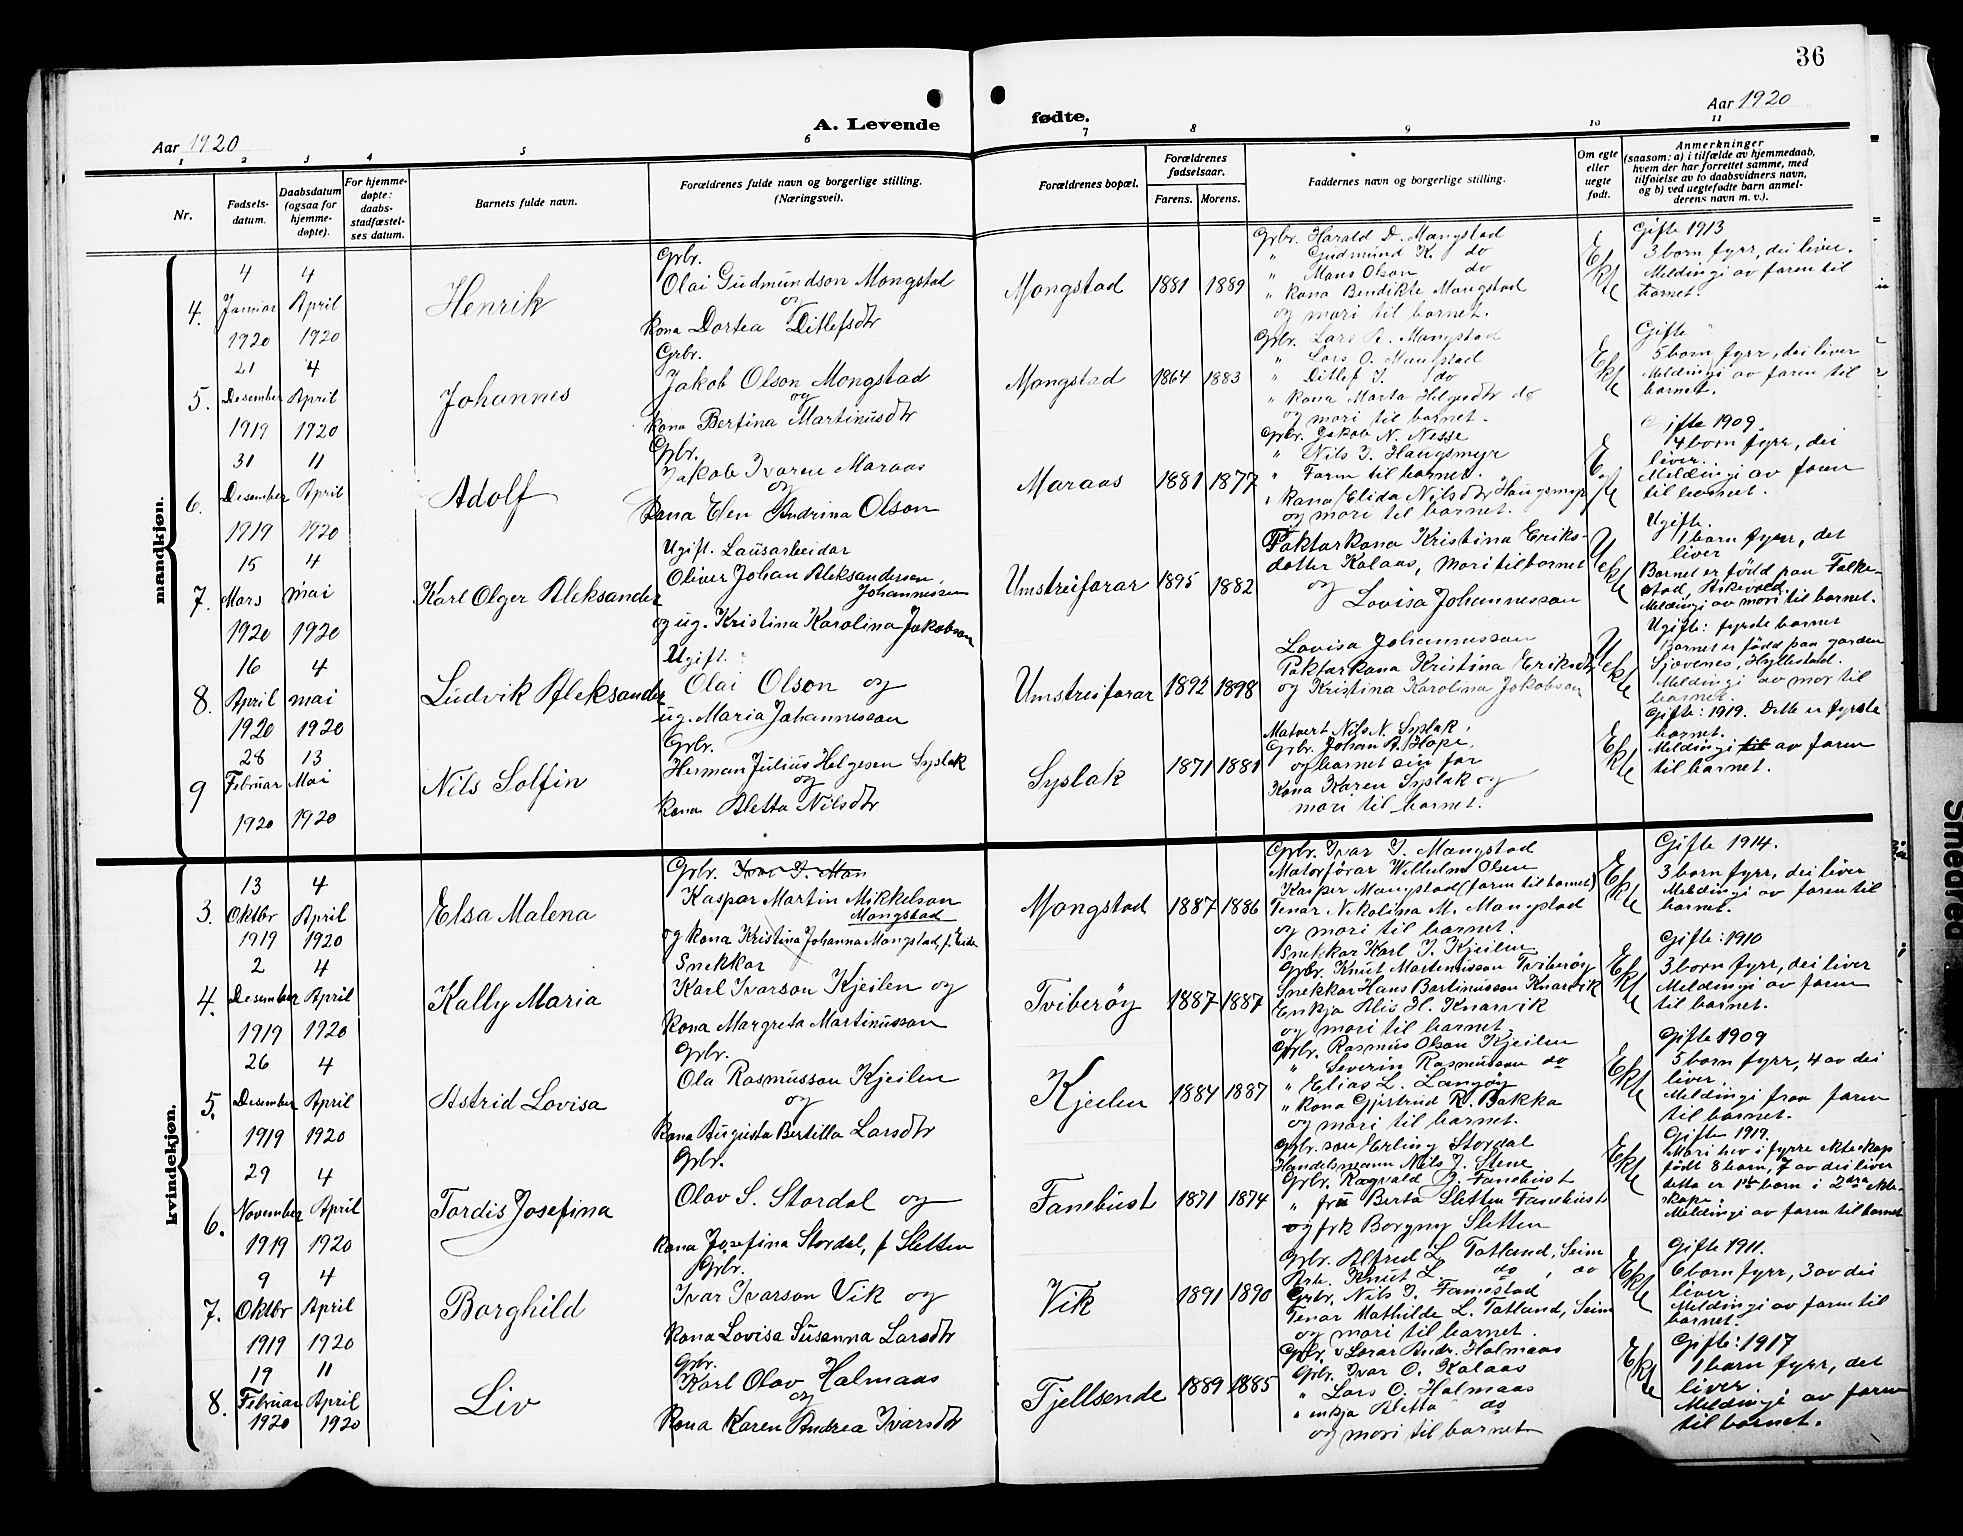 36
Aar 1920
A. Levende
fødte.
Aar 1920
1 2 3 4 5 6 7 8 9 10 11
Nr.
Fødsels-
datum.
Daabsdatum
(ogsaa for
hjemme-
døpte).
For hjemme-
døpte:
daabs-
stadfæstel-
ses datum.
Barnets fulde navn.
Forældrenes fulde navn og borgerlige stilling.
(Næringsvei).
Forældrenes bopæl.
Forældrenes
fødselsaar.
Farens. Morens.
Faddernes navn og borgerlige stilling.
Om egte
eller
uegte
født.
Anmerkninger
(saasom: a) i tilfælde av hjemmedaab,
hvem der har forrettet samme, med
tilføielse av to daabsvidners navn,
og b) ved uegtefødte barn anmel-
derens navn m. v.).
mandkjøn.
4.
4
Januar
1920
4
April
1920
Henrik
Grbr.
Olai Gudmundson Mongstad
og
kona Dortea Ditlefsdtr
Mongstad
1881 1889
Grbr. Harald D. Mangstad
" Gudmund K. do
" Mons Olson do
" kona Bendikte Mangstad
og mori til barnet.
Ekte
Gifte 1913
3 born fyrr, dei liver.
Meldingi av faren til
barnet.
5.
21
Desember
1919
4
April
1920
Johannes
Grbr.
Jakob Olson Mongstad
og
kona Bertina Martinusdtr
Mongstad
1864 1883
Grbr. Lars R. Mangstad
" Lars O. Mangstad
" Ditlef I. do
" kona Marta Helgesdtr do
og mori til barnet.
Ekte
Gifte "
5 born fyrr, dei liver
Meldingi av faren til
barnet.
6.
31
Desember
1919
11
April
1920
Adolf
Grbr.
Jakob Ivaren Maraas
og
Kona Elen Andrina Olson
Maraas
1881 1877
Grbr. Jakob N. Nesse
" Nils I. Haugsmyr
" Faren til barnet.
" kona Elida Nilsdtr Haugsmyr
og mori til barnet.
Ekte
Gifte 1909.
4 born fyrr, dei
liver.
Meldingi av faren
til barnet.
7.
15
Mars
1920
4
mai
1920
Karl Olger Aleksander
Ugift. Lausarbeidar
Oliver Johan Aleksandersen,
Johannessen
og ug. Kristina Karolina Jakobson
Umstreifarar
1895 1882
Paktarkona Kristina Eriks-
dotter Kalaas, Mori til barnet
og
Lovisa Johannesson
Uekte
Ugifte.
1 barn fyrr, det
liver
Barnet er född paa Falke-
stad, Askevold.
Meldingi av mori til barnet.
8.
16
April
1920
4
mai
1920
Ludvik Aleksander
Ugift.
Olai Olson og
ug. Maria Johannesson
Umstreifarar
1892 1898
Lovisa Johannesson
Paktarkona Kristina Eriksdtr
og Kristina Karolina Jakobson
Uekte
Ugifte: fyrste barnet
Barnet er född paa garden
Sjovenes, Hyllestad.
Meldingi av mor til
barnet.
9
28
Februar
1920
13
Mai
1920
Nils Solfin
Grbr.
Herman Julius Helgesen Syslak
og
kona Aletta Nilsdtr
Syslak
1871 1881
Matvert Nils N. Syslak,
Grbr. Johan A. Hope,
og barnet sin far
Kona Karen Syslak og
mori til barnet.
Ekte
Gifte: 1919. Dette er fyrste
barnet.
Meldingi til av faren
til barnet.
kvindekjøn.
3.
13
Oktbr
1919
4
April
1920
Elsa Malena
Grbr. Ivar I. Man
Kaspar Martin Mikkelson
Mongstad
og kona Kristina Johanna Mongstad, f. Eide
Mongstad
1887 1886
Grbr. Ivar I. Mangstad
Matorförar Wilhelm Olsen
Kasper Mangstad (faren til barnet)
Tenar Nikolina M. Mangstad
og mori til barnet.
Ekte
Gifte 1914.
3 born fyrr, dei liver
Meldingi av faren til
barnet.
4.
2
Desember
1919
4
April
1920
Kally Maria
Snekkar
Karl Ivarson Kjeilen og
kona Margreta Martinusson
Tviberöy
1887 1887
Snekkar Karl I. Kjeilen
Grbr. Knut Martinusson Tviberöy
Snekkar Hans Bertinusson Knarvik
Enkja Alis H. Knarvik
og mori til barnet.
Ekte
Gifte: 1910
3 born fyrr, dei liver
Meldingi av faren
til barnet.
5.
26
Desember
1919
4
April
1920
Astrid Lovisa
Grbr.
Ola Rasmusson Kjeilen
og
kona Augusta Bertilla Larsdtr
Kjeilen
1884 1887
Grbr. Rasmus Olson Kjeilen
" Severin Rasmusson do
" Elias L. Langöy
" kona Gjertrud R. Bakka
og mori til barnet.
Ekte
Gifte 1909
5 born fyrr, 4 av dei
liver.
Meldingi fraa faren
til barnet.
6.
29
November
1919
4
April
1920
Tordis Josefina
Grbr.
Olav S. Stordal og
kona Josefina Stordal, f. Sletten
Fanebust
1871 1874
Grbr. son Erling Stordal
Handelsmann Nils J. Stene
Grbr. Ragvald J. Fanebust
" fru Berta Sletten Fanebust
og frk Borgny Sletten
Ekte
Gifte 1919.
Mori hev i fyrre ekteskap
född 8 born, 7 av dei liver
dette er 1ste born i 2dra ekte-
skape.
Meldingi av faren til barnet
7.
9
Oktbr
1919
4
April
1920
Borghild
Grbr.
Ivar Ivarson Vik og
kona Lovisa Susanna Larsdtr
Vik
1891 1890
Grbr. Alfred L. Totland, Seim
Arb. Knut L. do, do
Grbr. Nils I. Famestad
Tenar Mathilde L. Totland, Seim
og mori til barnet.
Ekte
Gifte 1911.
6 born fyrr, 3 av dei
liver.
Meldingi av faren til
barnet.
8.
19
Februar
1920
11
April
1920
Liv
Grbr.
Karl Olav Halmaas
og
kona Karen Andrea Ivarsdtr
Fjellsende
1889 1885
Grbr. v Lærar Andr. Halmaas
Grbr. Ivar O. Kalaas
" Lars O. Halmaas
" enkja Aletta do
og mori til barnet
Ekte
Gifte: 1917
1 barn fyrr, det
liver
Meldingi av faren
til barnet.